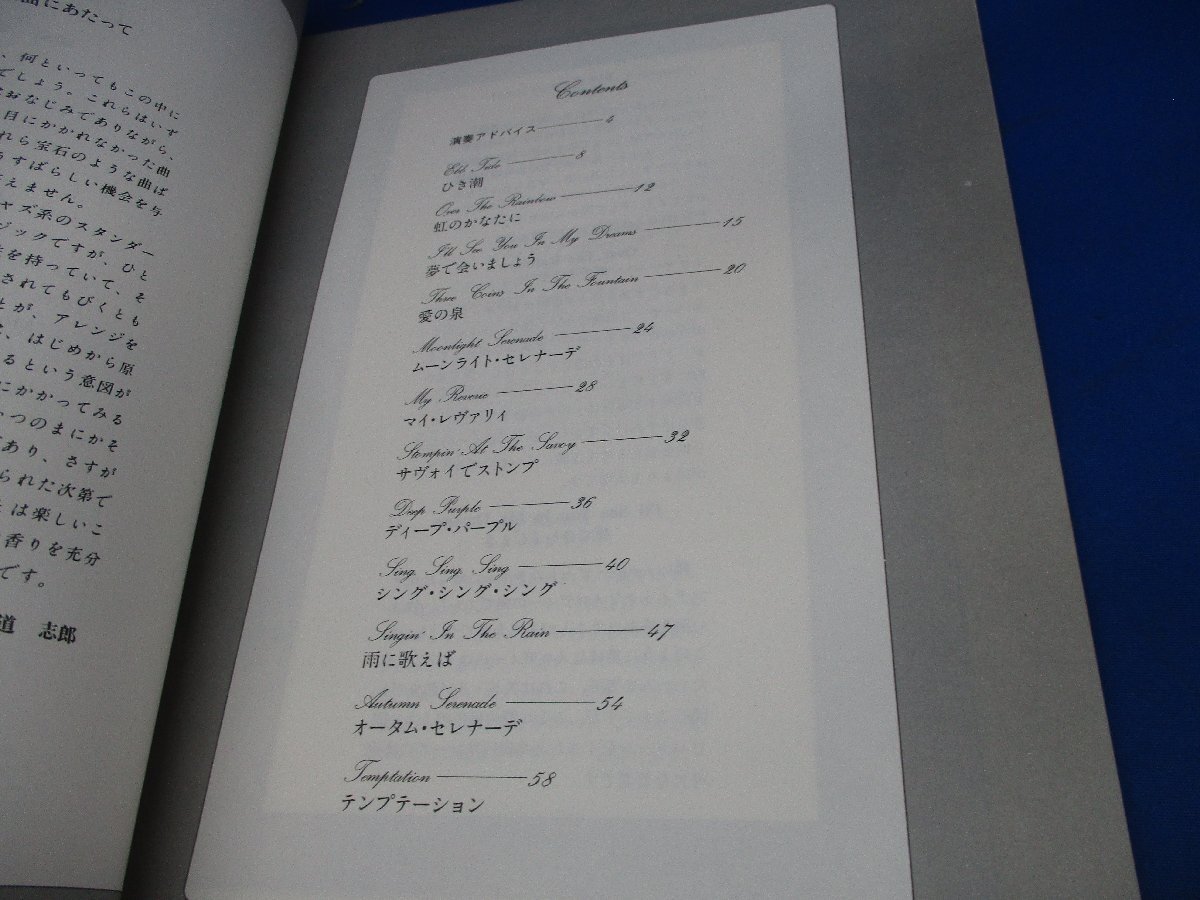 曲にあたって
、何といってもこの中に
でしょう。これらはいず
おなじみでありながら、
目にかかれなかった曲
れら宝石のような曲ば
うすばらしい機会を与
さえません。
ャズ系のスタンダー
ジックですが、ひと
を持っていて、そ
されてもびくとも
とが、アレンジを
、はじめから原
るという意図が
にかかってみる
つのまにかそ
であり、さすが
られた次第で
とは楽しいこ
香りを充分
です。
道 志郎
Contents
演奏アドバイス 4
Ebb Tide 8
ひき潮
Over The Rainbow 12
虹のかなたに
I'll See You In My Dreams 15
夢で会いましょう
Three Coins In The Fountain 20
愛の泉
Moonlight Serenade 24
ムーンライト・セレナーデ
My Reverie 28
マイ・レヴァリィ
Stompin' At The Savoy 32
サヴォイでストンプ
Deep Purple 36
ディープ・パープル
Sing Sing Sing 40
シング・シング・シング
Singin' In The Rain 47
雨に歌えば
Autumn Serenade 54
オータム・セレナーデ
Temptation 58
テンプテーション